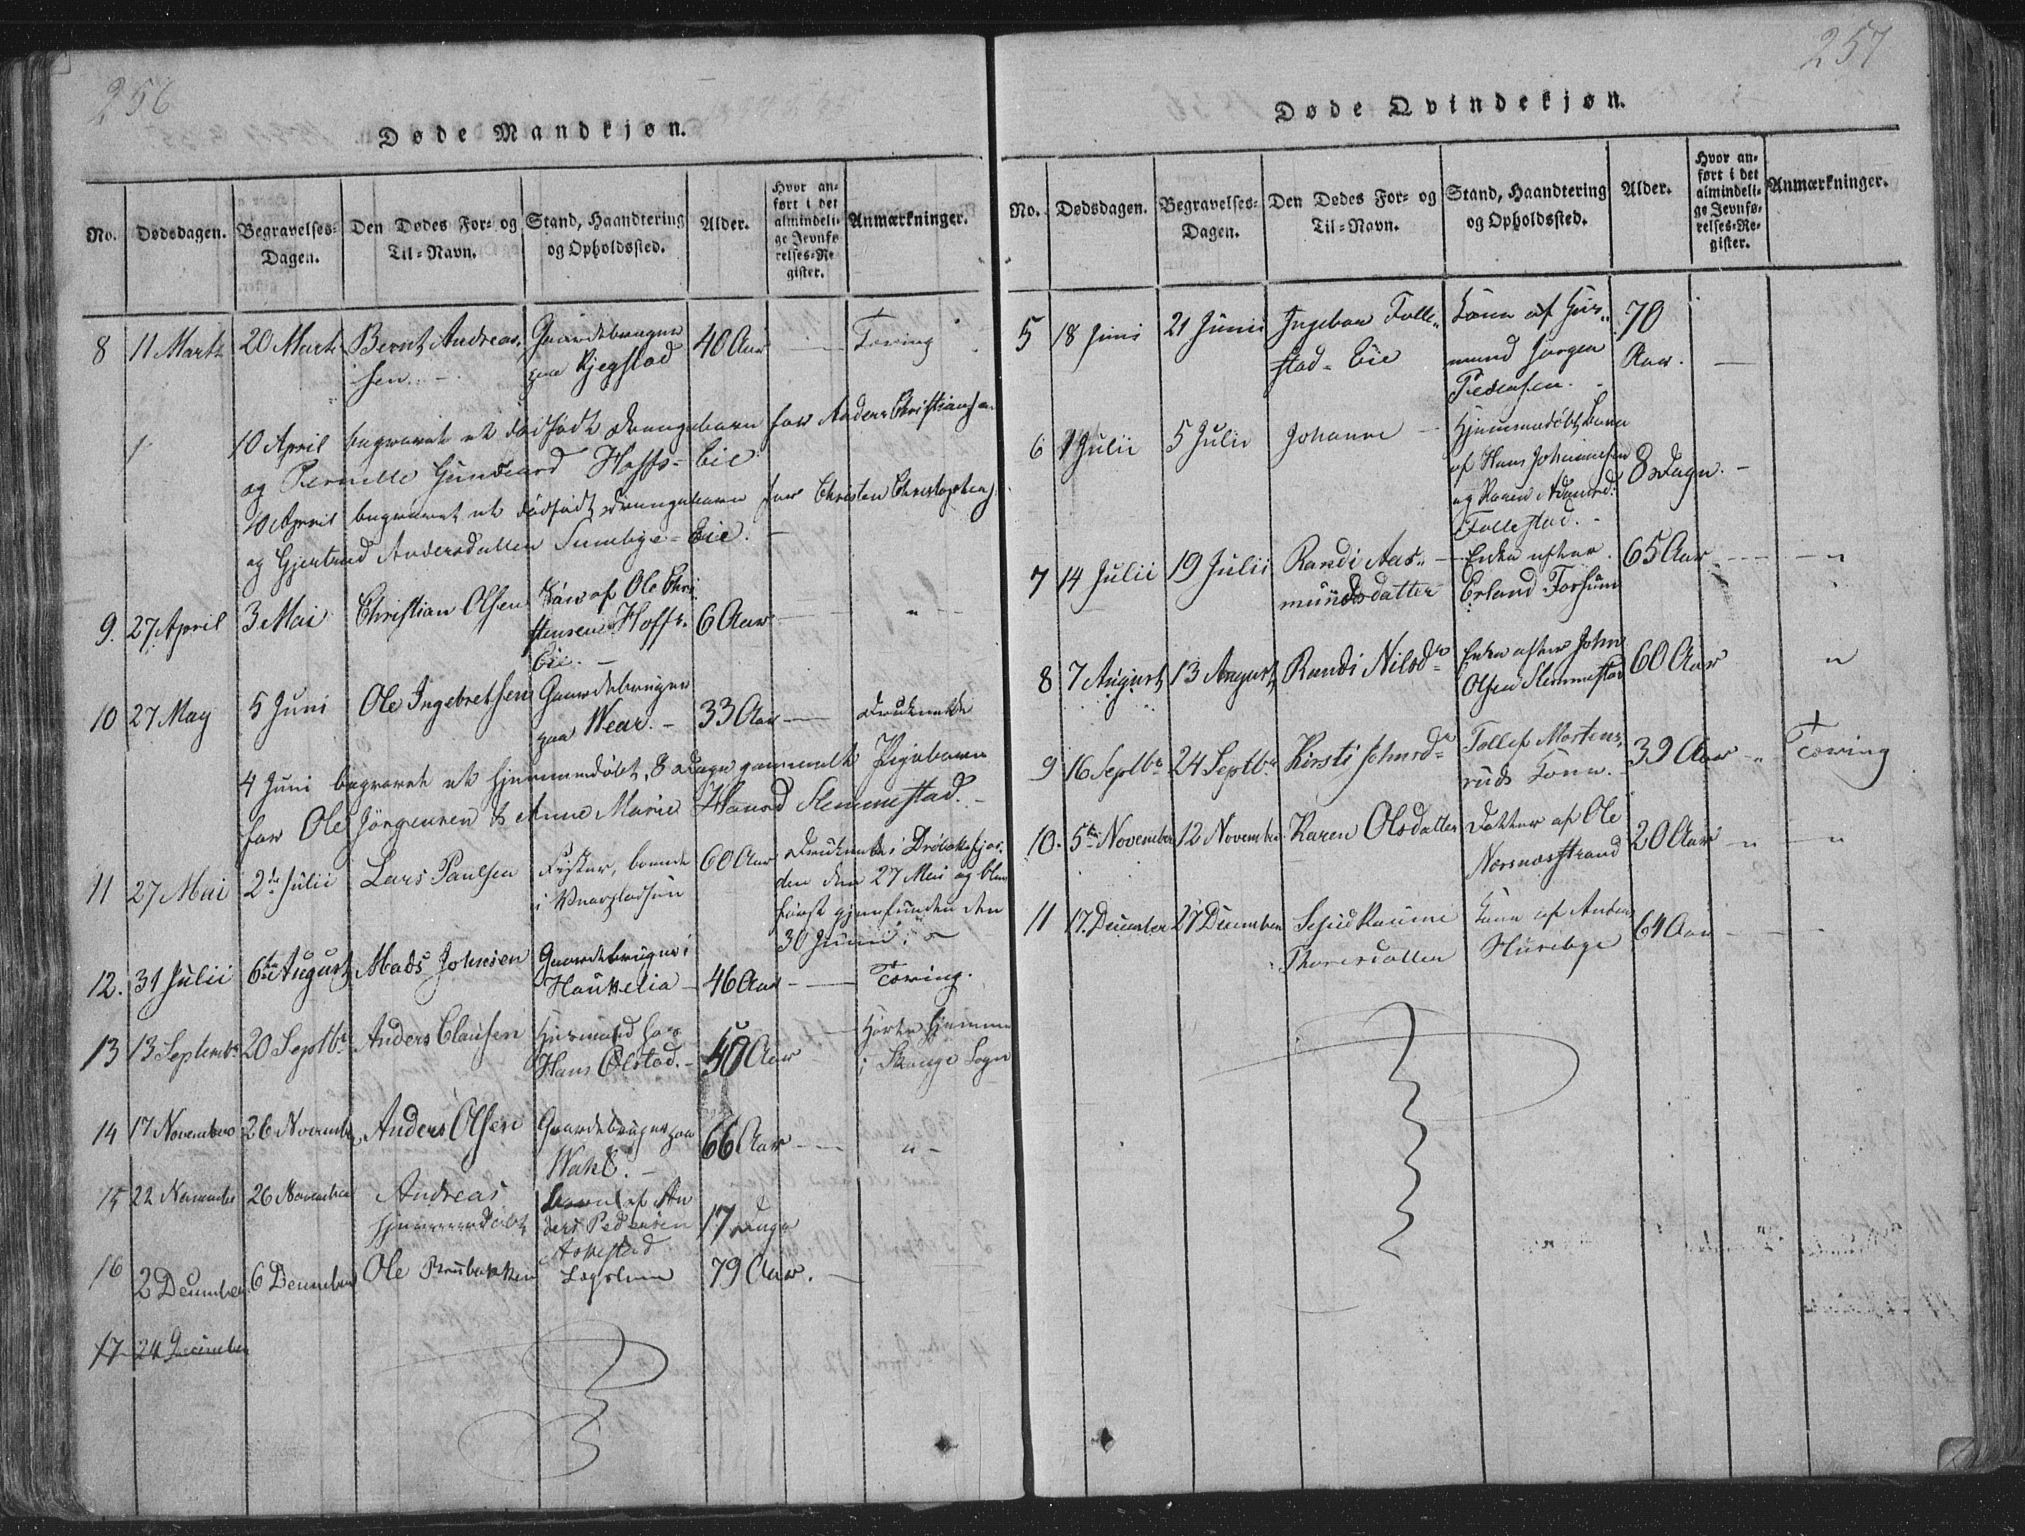 256
Døde Mandkjøn.
No.
Dødsdagen.
Begravelses-
Dagen.
Den Dødes For- og
Til-Navn.
Stand, Haandtering
og Opholdssted.
Alder.
Hvor an-
ført i det
almindeli-
ge Jevnfø-
relses-Re-
gister.
Anmærkninger.
8 11 Marts 20 Marts Bernt Andreas- Gaardebruger 40 Aar Tæring
sen paa Kjegstad
10 April begravet et dødfødt Drengebarn for Anders Christiansen
og Pernille Hoffs-Eie
10 April begravet et dødfødt Drengebarn for Christen Christophers.
og Gjertrud Andersdatter Eie.
9. 27 April 3 Mai Christian Olsen Søn af Ole Chri- 6 Aar "
stensen Hoffs-
Eie.
10 27 May 5 Juni Ole Ingebretsen Gaardebruger 33 Aar Druknede
paa Wear.
4 Juni begravet et hjemmedøbt, 8 Dage gammelt Pigebarn
for Ole Jörgensen & Anne Marie Slemmestad.
11 27 Mai 2de Julii Lars Paulsen Fisker, boende 60 Aar Druknede i Drøbaksfjor-
i den den 27 Mai og blev
først gjenfunden den
30 Junii
12. 31 Julii 6te August Mads Johnsen Gaardebruger i 46 Aar Tæring.
Haukelia
13 13 Septembr 20 Septbr Anders Clausen Husmand hos 50 Aar Hörte hjemme
Hans Ølstad. i Sogn
14 17 November 26 November Anders Olsen Gaardebruger paa 66 Aar "
15 22 November 26 November Andreas Barn af An- 17 Dage
hjemmedøbt ders Pedersen
Askestad
16 2 December 6 December Ole Lægslem 79 Aar.
17 24 December
257
Døde Qvindekjøn.
No.
Dødsdagen.
Begravelses-
Dagen.
Den Dødes For- og
Til-Navn.
Stand, Haandtering
og Opholdssted.
Alder.
Hvor an-
ført i det
almindeli-
ge Jevnfø-
relses-Re-
gister.
Anmærkninger.
5 18 Juni 21 Junii Ingebor Folle- Kone af Hus- 70
stad-Eie mand Jørgen Aar.
Pedersen.
6 1 Julii 5 Julii Johanne Hjemmedøbt Barn
af Hans Johannesen 8 Dage.
og Karen
Follestad.
7 14 Julii 19 Julii Randi Aas- Enke efter 65 Aar "
mundsdatter Erland Forsum
8 7 August 13 August Randi Nilsdr Enke efter John 60 Aar "
Olsen Slemmestad
9 16 Septbr 24 Septbr Kirsti Johnsdr Tollef Mortens- 39 Aar " Tæring
ruds Kone.
10. 5te November 12 November Karen Olsdatter Datter af Ole 20 Aar " "
Næsnæsstrand
11 17. December 27 December Kone af Anders 64 Aar
Thoresdatter